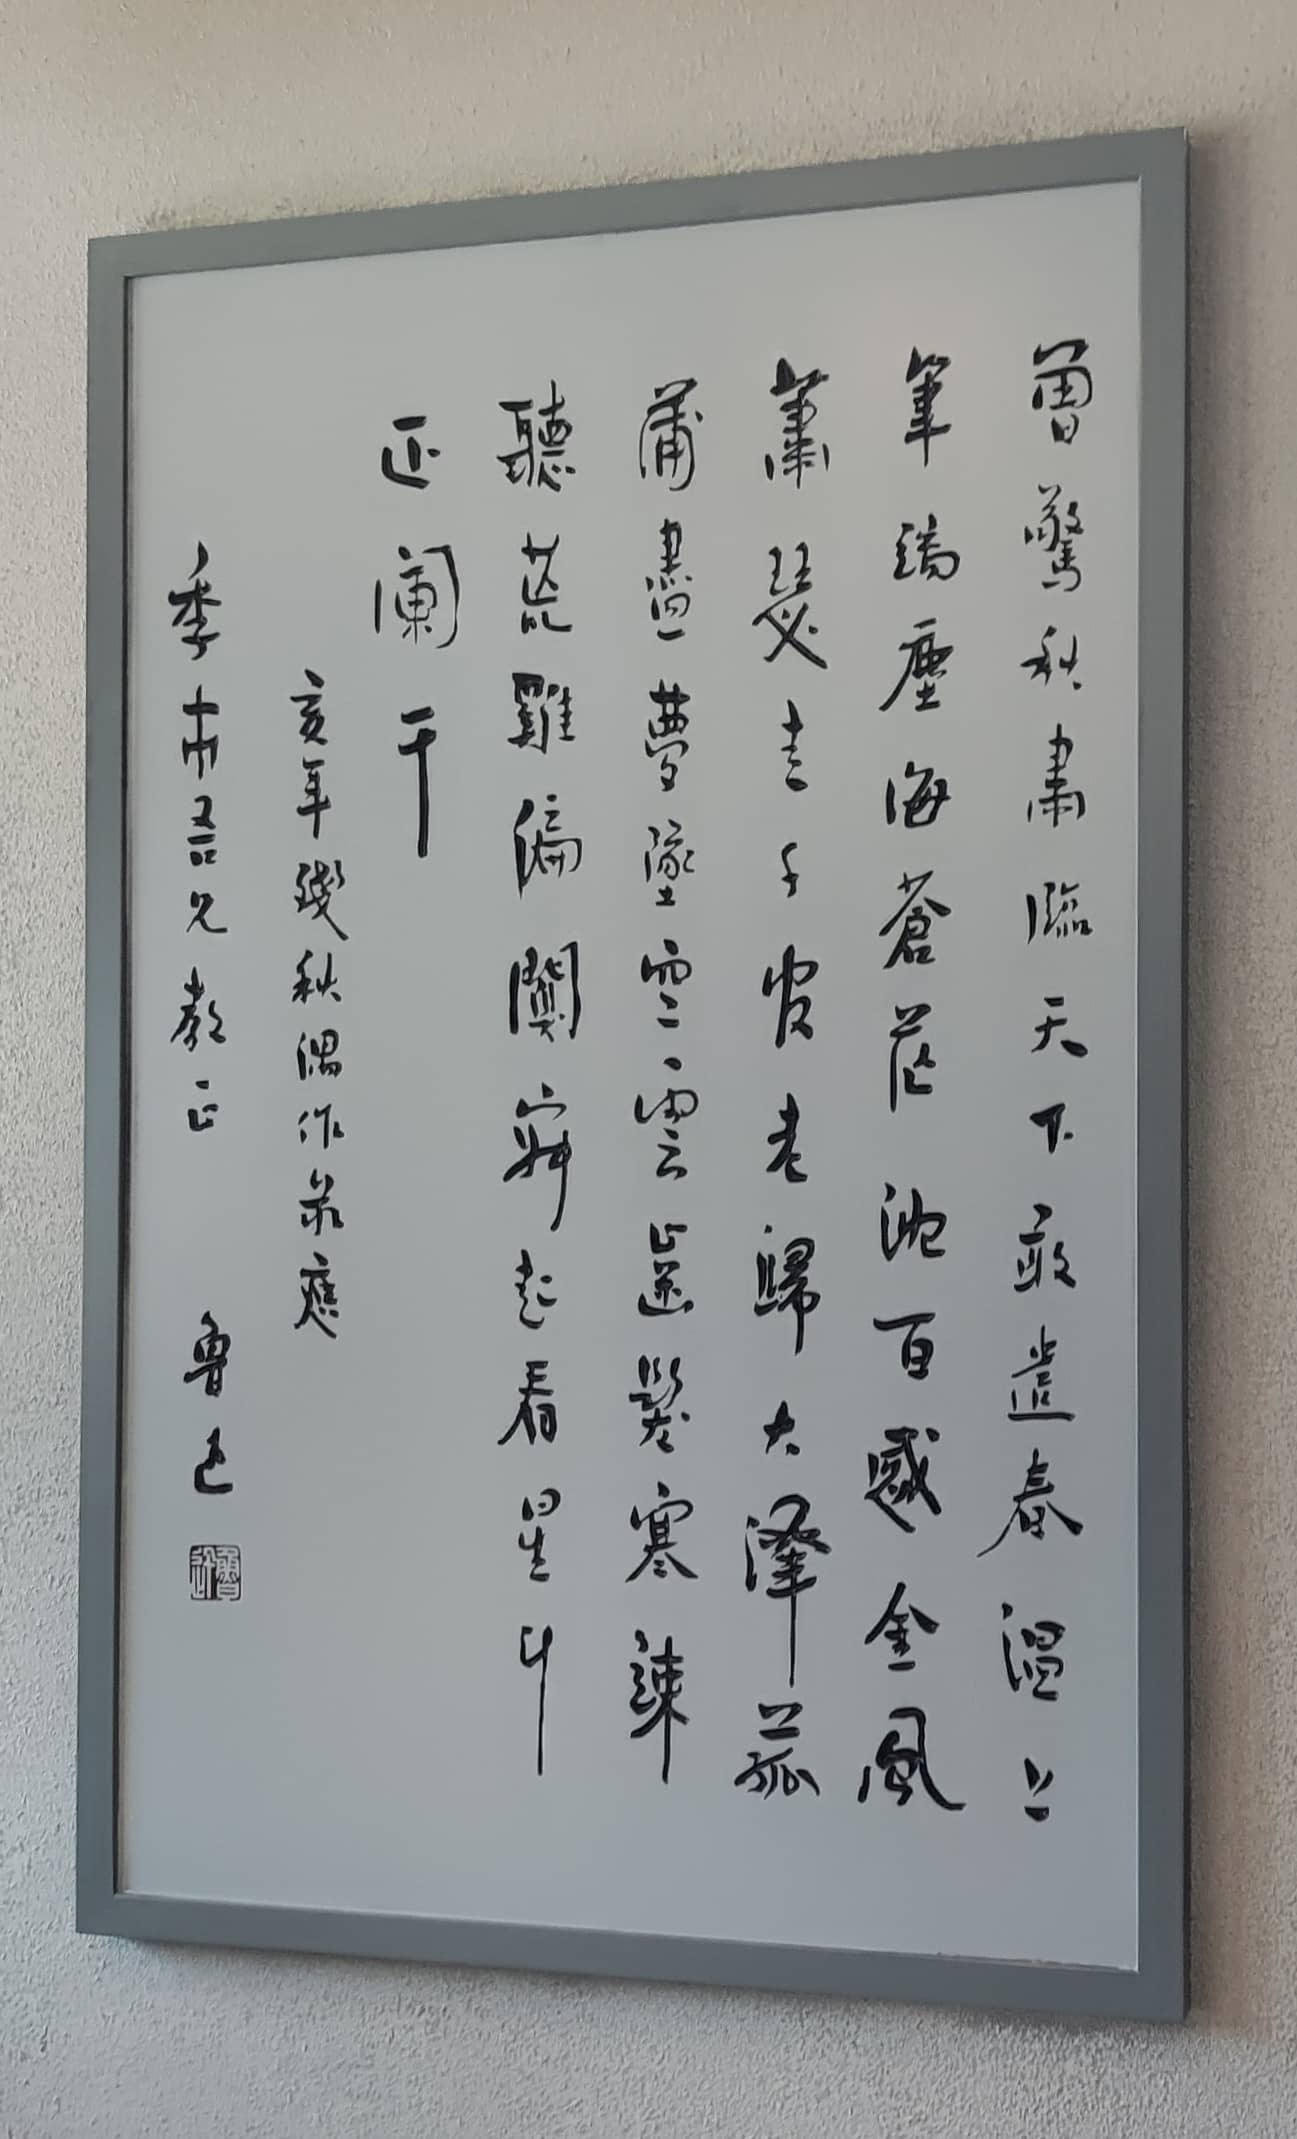 曾驚秋肅臨天下敢遣春溫上
筆端塵海蒼茫沈百感金風
蕭瑟走千官老歸大澤菰
蒲盡夢墜空雲齒髮寒竦
聽荒雞偏闃寂起看星斗
正闌干
亥年殘秋偶作錄應
季市吾兄教正 魯迅
魯迅